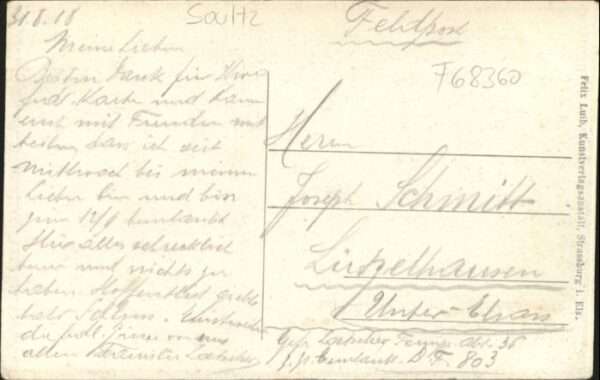 31.8.18
Soultz
Feldpost
F68360
Meine Lieben
Besten Dank für Ihre
Karte und kann
euch mit Freuden mit-
teilen, dass ich seit
Mittwoch bis meinen
Lieben bin und bin
zum 12/9 beurlaubt
Hier alles schrecklich
teuer und nichts zu
haben. Hoffentlich
bald Schluss.
die Grüsse von uns
allen
Herrn
Joseph Schmitt
Lützelhausen
Unter-Elsass
Gefr. Loetscher Abt. 36
z. Zt. beurlaubt D. F. 803
Felix Luib, Kunstverlagsanstalt, Strassburg i. Els.